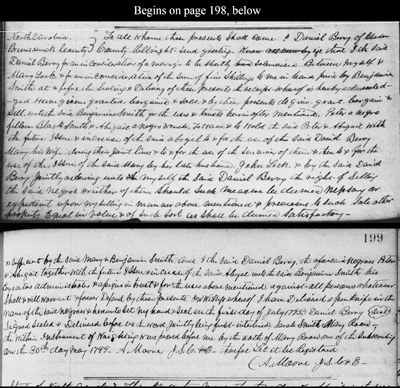 Begins on page 198, below
North Carolina } To all whome these presents Shall Come I Daniel Berry of
Brunswick County } County Millwright Send greeting Know all men by
Daniel Berry for and in Consideration of a marriage to be Shortly had Solemnized Between myself &
Mary Lock & for and in Consideration of the Sum of five Shillings to me in hand paid by Benjamin
Smith at & before the Sealing & Delivery of these presents the receipt whereof is hereby acknowled
ged Have given granted bargained & Sold & by these presents do give grant bargain &
Sell unto the said Benjamin Smith the hereinafter mentioned. Peter a negro
fellow Slave & Abigail a negro wench To Have & To Hold the said Peter & Abigail with
the future Issue & increase of the Said Abigail to & for the use of the Said Daniel Berry &
Mary his Wife during their Joint lives & to & for the use of the Survivor of them & to & for the
use of the Issue of the Said Mary by her late husband John Lock & by the Said Daniel
Berry Jointly, reserving unto myself the Said Daniel Berry the right of Selling
the Said Negroes or either of them Should Such measure be deemed Necessary or
expedient upon my Settling in manner above mentioned & previous to Such Sale other
property Equal in Value & of Such Sort as Shall be deemed Satisfactory
199
& Sufficient by the Said Mary & Benjamin Smith And I the Said Daniel Berry, the aforesaid Negroes Peter
& Abigail together with the future Issue & increase of the Said Abigail unto the Said Benjamin Smith his
Executors administrators & assigns in trust & for the uses above mentioned against all persons whatsoever
Shall & Will warrant & forever Defend by these presents In Witness whereof I have Delivered a penknife in the
name of the Said negroes & hereunto Set my hand & Seal this first day of July 1785 Daniel Berry (Seal)
Signed Sealed & Delivered before us the word Jointly being first interlined Sarah Smith Mary Moore
The Within Instrument of Writing was proved before me by the oath of Mary Moore one of the Subscribing
on the 30th day May 1789. A. Moore J.S.C.L&E. Therefore Let it be Registered
A. Moore J.S.C&E